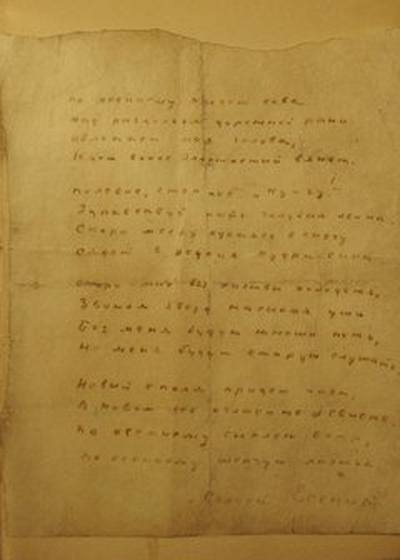 По осеннему кычет сова
Над раздольем дорожной рани
Облетает моя голова,
Куст волос золотистый вянет.
Полевое, степное "Ку-гу"!
Здравствуй мать голубая осина.
Скоро месяц купаясь в снегу
Сядет в редкие кудри сына.
Скоро мне без листвы холодеть,
Звоном звезд насыпая уши
Без меня будут юноши петь,
Не меня будут старцы слушать.
Новый с поля придет поэт,
В новом лес огласится свисте.
По осеннему сыплет ветр,
По осеннему шепчут листья
Сергей Есенин